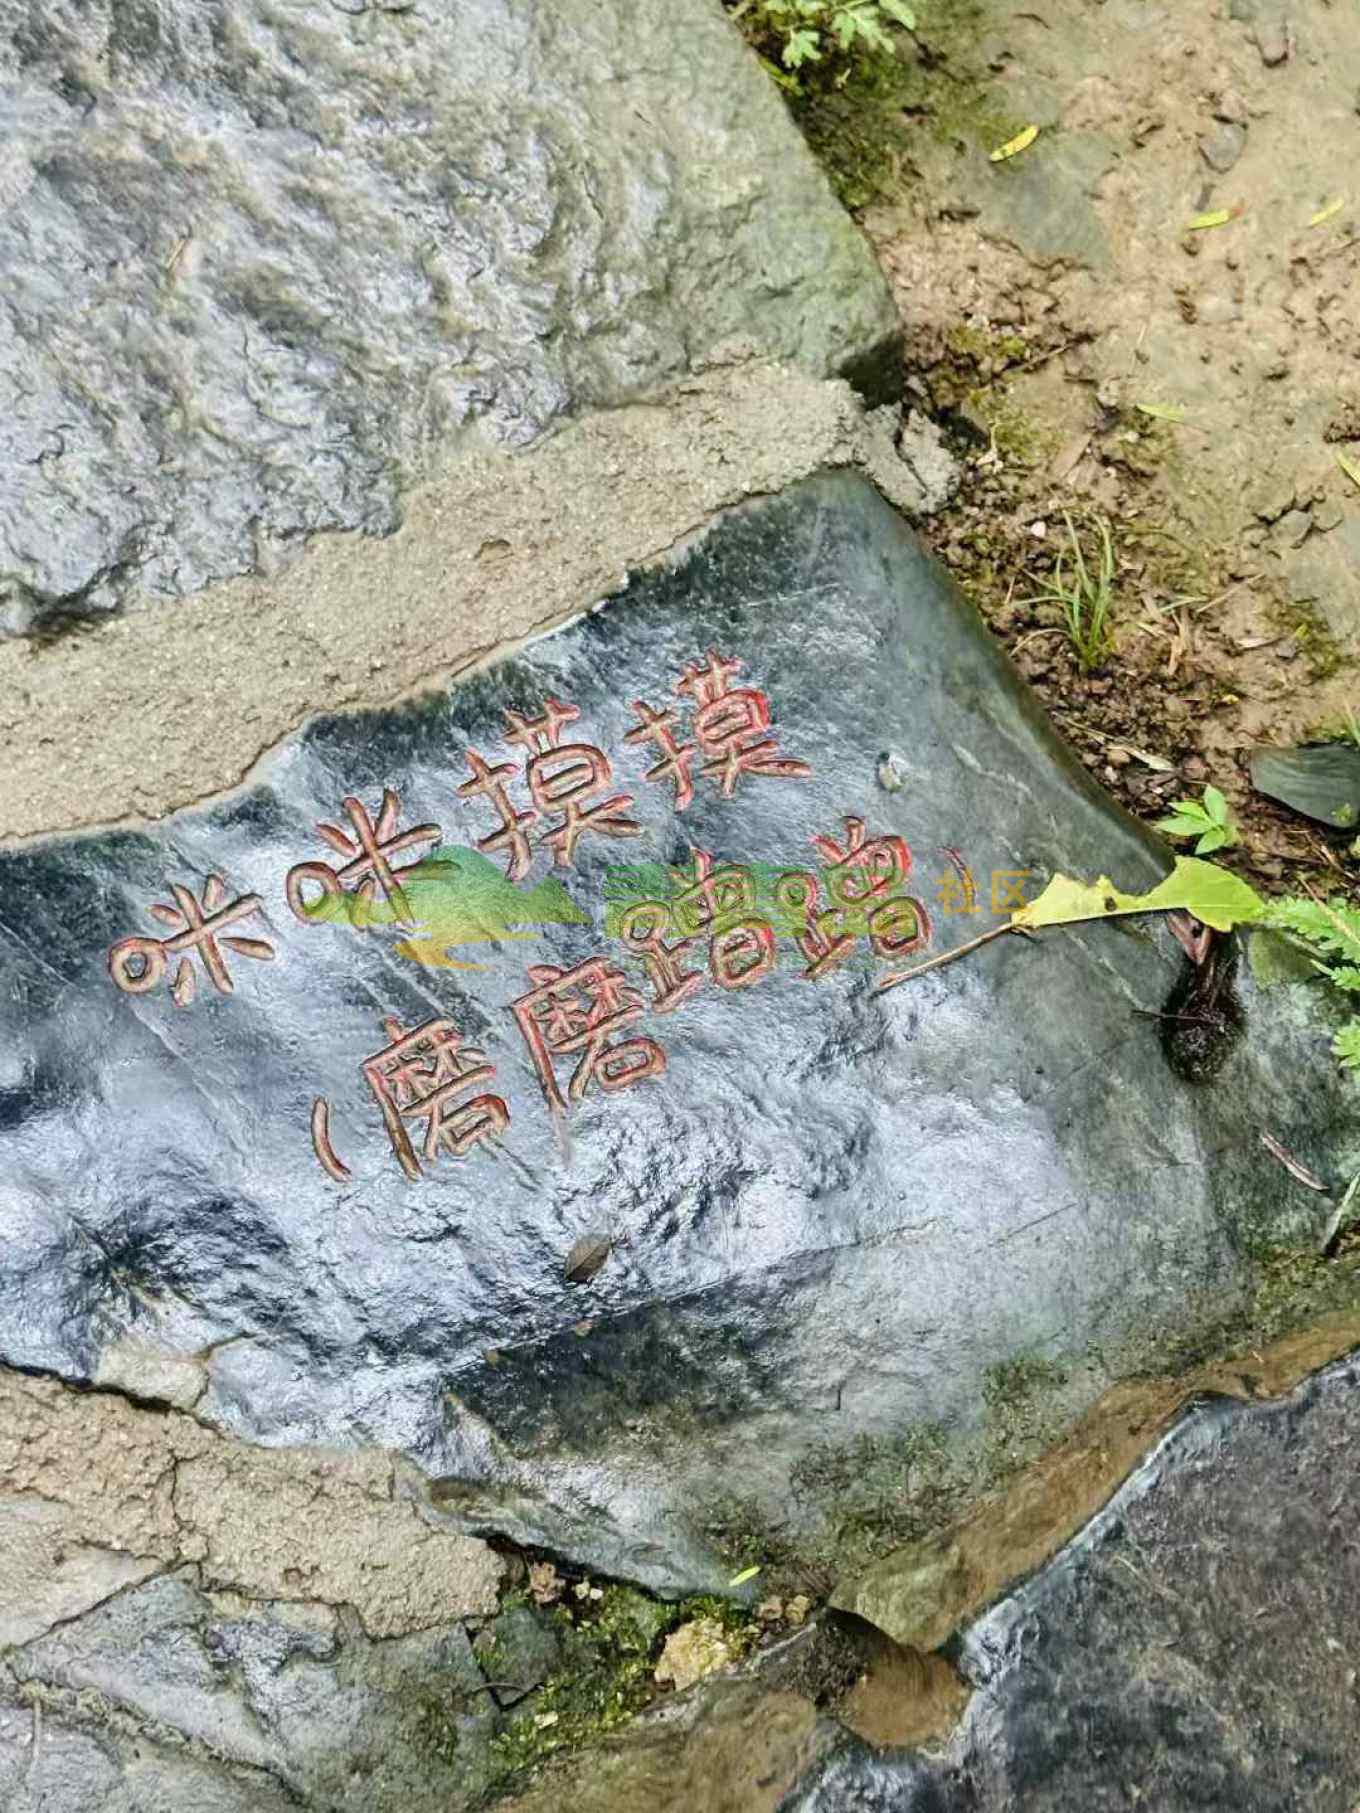 咪咪摸摸
(磨磨蹭蹭)
社区